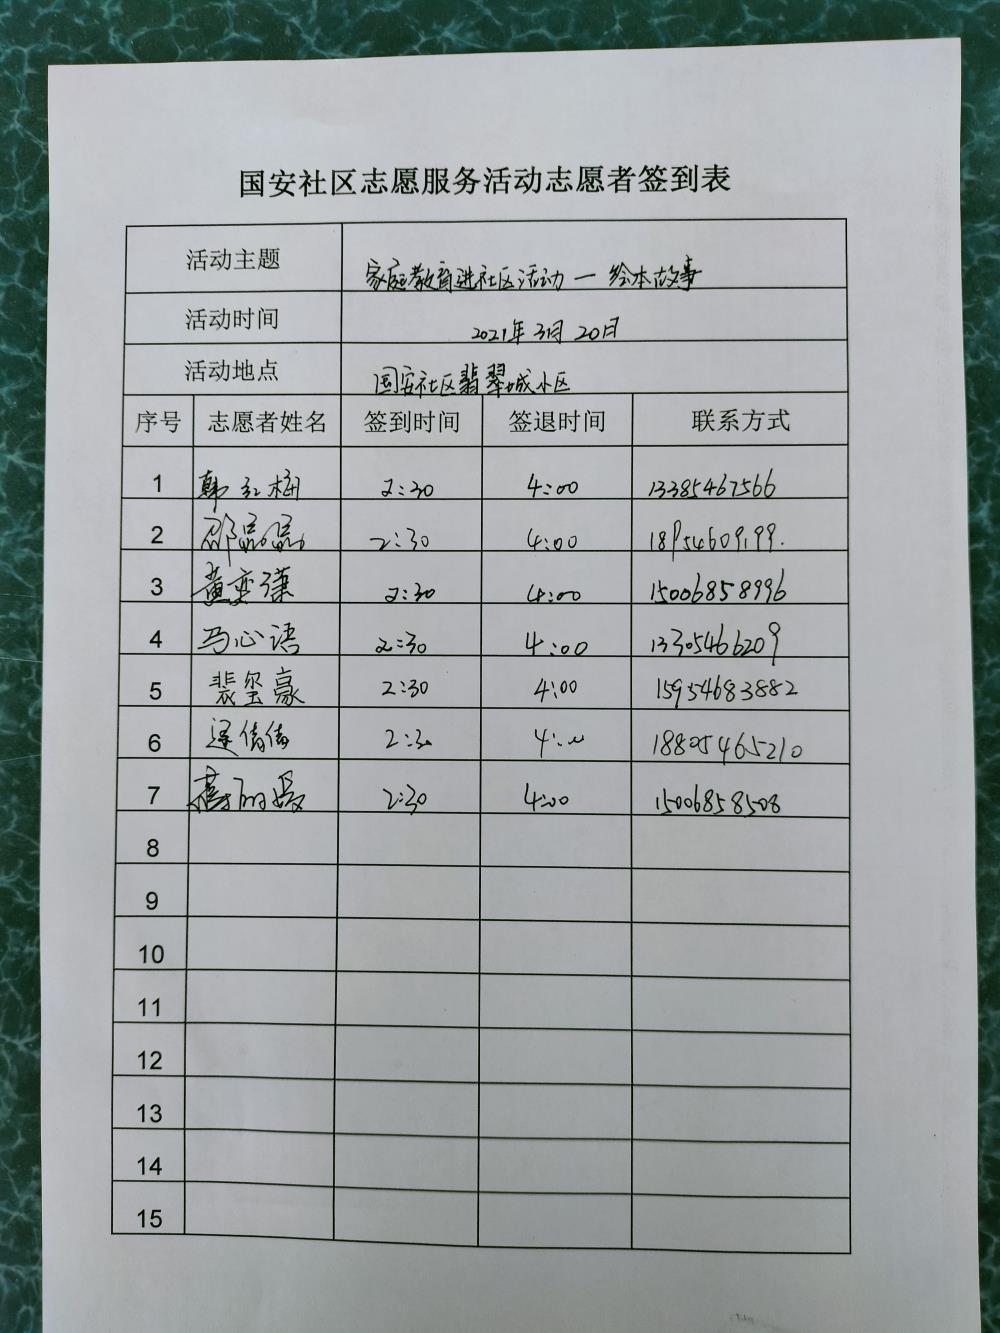 国安社区志愿服务活动志愿者签到表
活动主题 家庭教育进社区活动—绘本故事
活动时间 2021年3月20日
活动地点 国安社区翡翠城小区
序号 志愿者姓名 签到时间 签退时间 联系方式
1 韩红梅 2:30 4:00 13385467566
2 邵磊磊 2:30 4:00 18954609199.
3 黄 2:30 4:00 15006858996
4 马心语 2:30 4:00 13305466209
5 裴玺豪 2:30 4:00 15954683882
6 倩倩 2:30 4:00 18805465210
7 2:30 4:00 15006858508
8
9
10
11
12
13
14
15